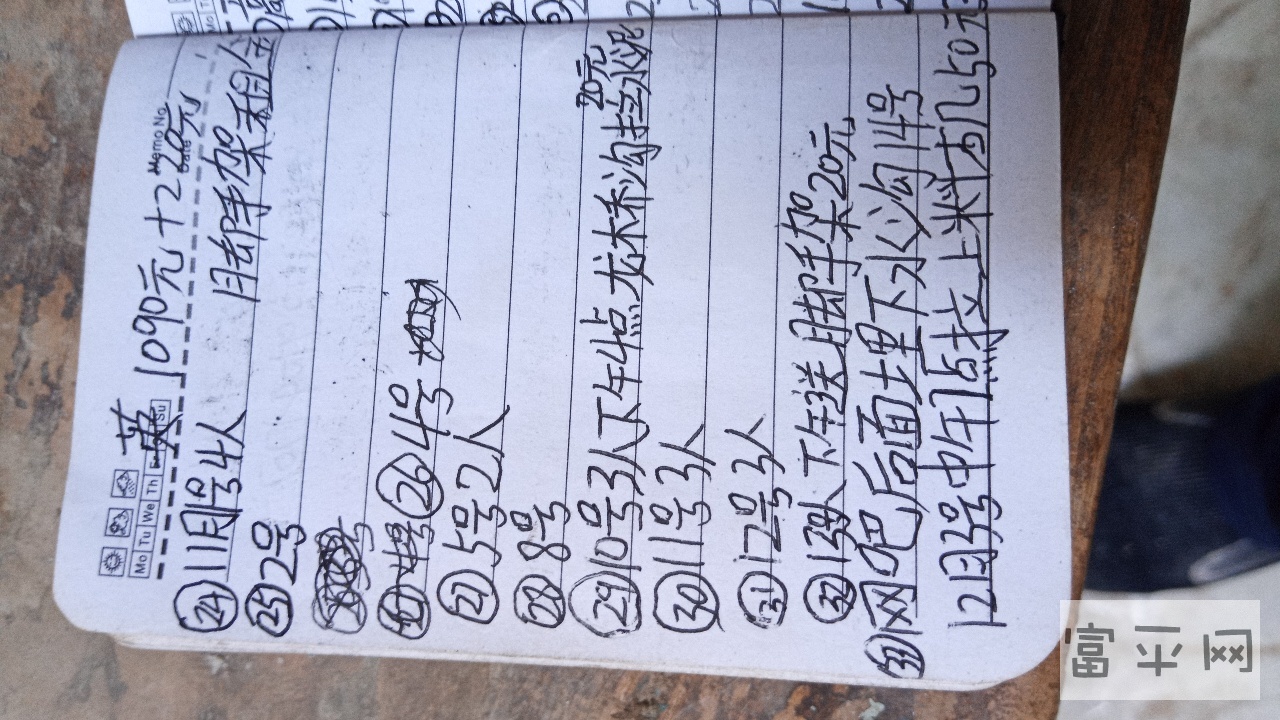 英 1090元+220元
Memo No.
Date
Mo Tu We Th Su
㉔ 11月1号4人 月却手架租金
㉕ 2号
㉖ 4号
㉗ 5号2人
㉘ 8号
㉙ 10号3人下午4点龙木桥沟挡水泥20元
㉚ 11号3人
㉛ 12号3人
㉜ 13号3人下午送月却手架20元
㉝ 网吧后面土埋下水沟14号
12月3号中午1点拉上料机50元
富平网